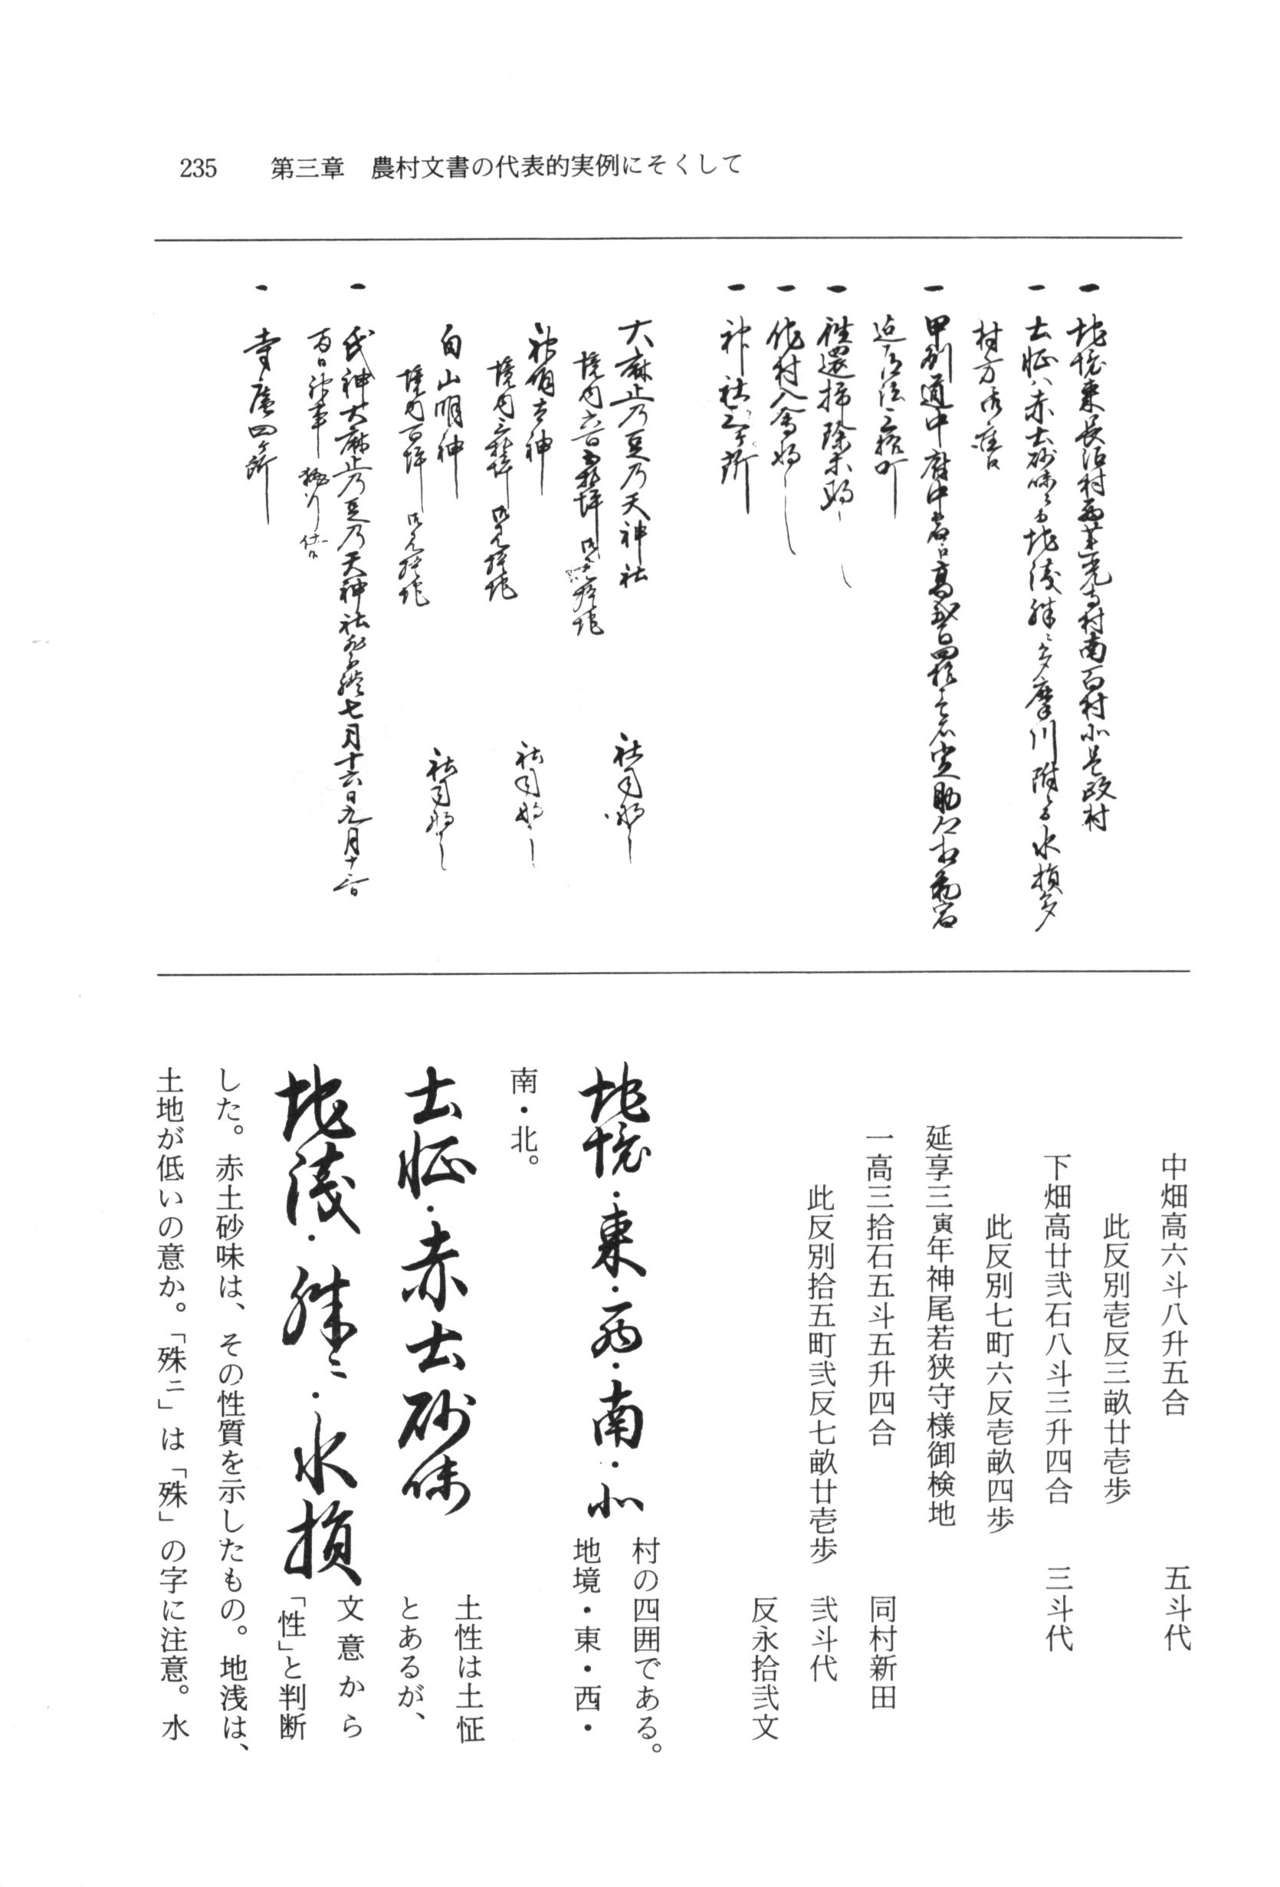 235　第三章　農村文書の代表的実例にそくして
一 地境東長沼村西蓮光寺村南百村北是政村
一 土性ハ赤土砂味ニ而地浅殊ニ多摩川附ニ而水損多
村方ニ御座候
一 甲州道中府中宿江高弐百四拾
道法三拾町
一 往還掃除無
一 他村入会無
一 神社三ヶ所
大麻止乃豆乃天神社
社司無
神明大神
社司無
白山明神
社司無
一 氏神大麻止乃豆乃天神社
七月十六日九月十
一 寺庵四ヶ所
中畑高六斗八升五合　五斗代
此反別壱反三畝廿壱歩
下畑高廿弐石八斗三升四合　三斗代
此反別七町六反壱畝四歩
延享三寅年神尾若狭守様御検地
一高三拾石五斗五升四合　同村新田
此反別拾五町弐反七畝廿壱歩　弐斗代
反永拾弐文
地境・東・西・南・北
村の四囲である。
地境・東・西・
南・北。
土怔・赤土砂味
土性は土怔
とあるが、
地浅・殊ニ・水損
文意から
「性」と判断
した。赤土砂味は、その性質を示したもの。地浅は、
土地が低いの意か。「殊ニ」は「殊」の字に注意。水